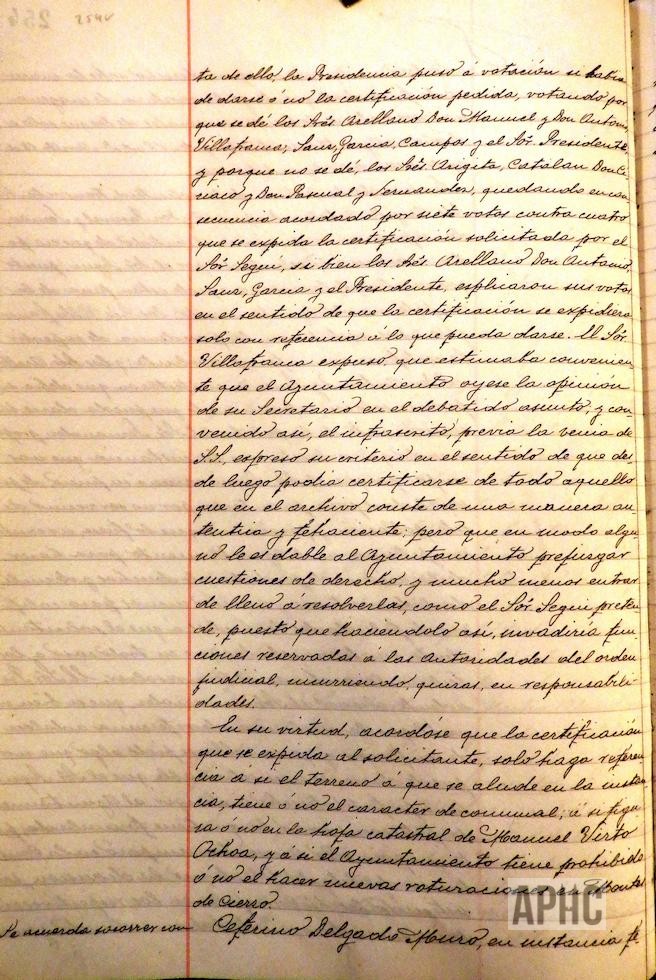 254v
ta de ello, la Presidencia puso á votación si habia
de darse ó nó la certificación pedida, votando por
que se dé los Srēs. Arellano Don Manuel y Don Antonio,
Villafranca, Sanz, Garcia, Campos y el Sōr. Presidente
y porque no se dé, los Srēs. Arigita, Catalan Don Ci-
riaco y Don Pascual y Fernandez, quedando en con
secuencia acordado por siete votos contra cuatro
que se expida la certificación solicitada por el
Sōr. Seguí, si bien los Srēs. Arellano Don Antonio,
Sanz, Garcia y el Presidente, esplicaron sus votos
en el sentido de que la certificación se expidiera
solo con referencia á lo que pueda darse. El Sōr.
Villafranca expuso, que estimaba convenien
te que el Ayuntamiento oyese la opinión
de su Secretario en el debatido asunto, y con
venido así, el infrascrito, previa la venia de
S.S., expresó su criterio en el sentido de que des
de luego podia certificarse de todo aquello
que en el archivo conste de una manera au
tentica y fehaciente; pero que en modo algu
no le es dable al Ayuntamiento prejuzgar
cuestiones de derecho, y mucho menos entrar
de lleno á resolverlas, como el Sōr. Segui preten
de, puesto que haciendolo así, invadiría fun
ciones reservadas á las autoridades del orden
judicial, incurriendo, quizas, en responsabili-
dades.
En su virtud, acordóse que la certificación
que se expida al solicitante, solo haga referen
cia á si el terreno á que se alude en la instan
cia, tiene ó nó el caracter de comunal; á si figu
ra ó nó en la hoja catastral de Manuel Virto
Ochoa, y á si el Ayuntamiento tiene prohibido
ó no el hacer nuevas roturaciones en Montes
de Cierzo.
Se acuerda socorrer con
Ceferino Delgado Muro, en instancia fe-
APHC